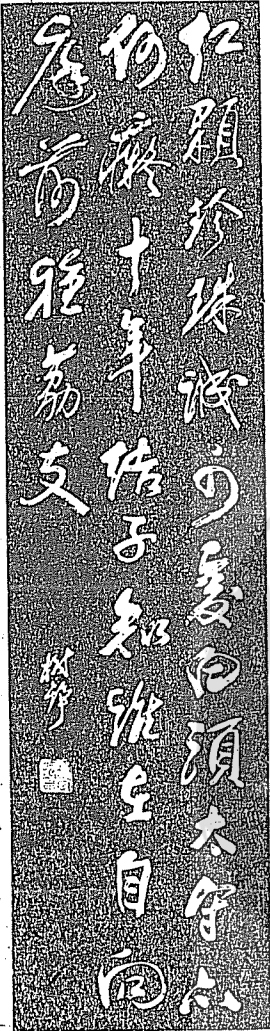 紅顆珍珠誠可愛白須太守亦
何癡十年結子知誰在自向
庭前種荔支